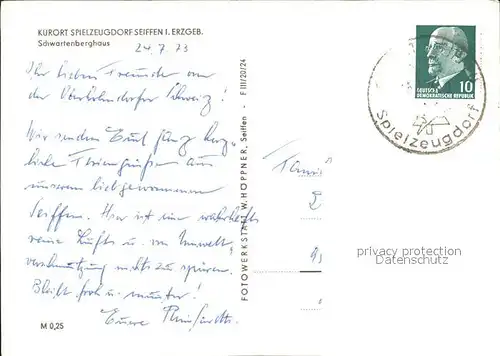 KURORT SPIELZEUGDORF SEIFFEN I. ERZGEB.
Schwartenberghaus
24.7.73
Ihr lieben Freunde von
der Schweiz!
Wir senden Euch ganz herz-
liche Feriengrüße aus
unserem liebgewonnenen
Seiffen. Hier ist eine wahrhaft
reine Luft u. von Umwelt-
verschmutzung nichts zu spüren.
Bleibt froh u. munter!
Eure
M 0,25
FOTOWERKSTATT W. HÖPPNER, Seiffen - F III/20/24
10
DEUTSCHE
DEMOKRATISCHE REPUBLIK
Spielzeugdorf
privacy protection
Datenschutz